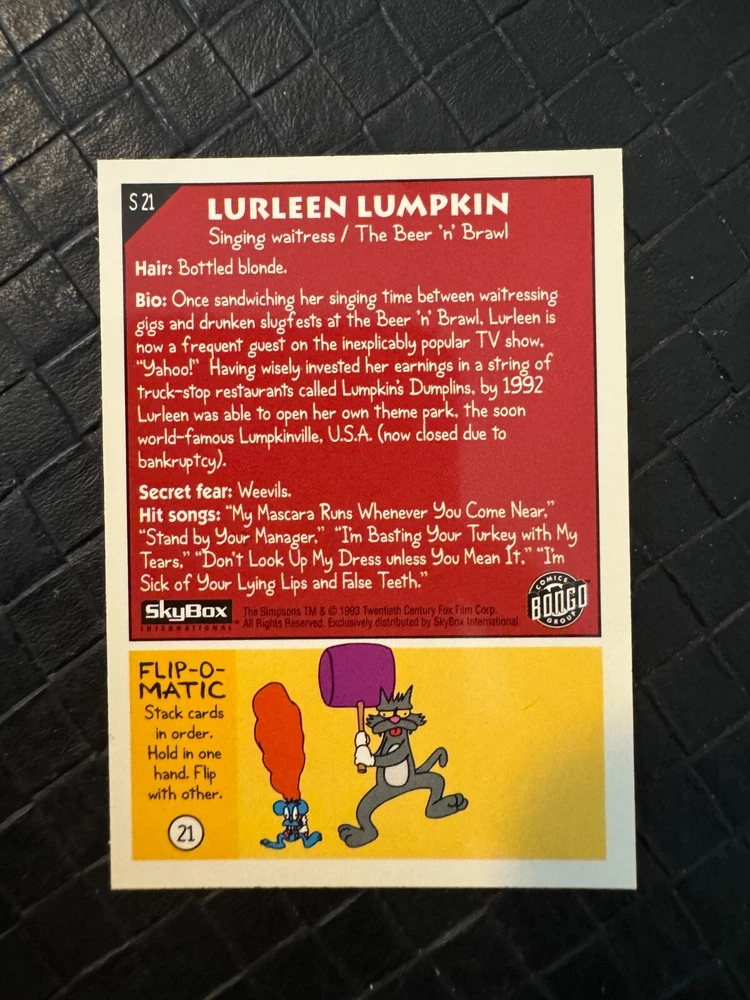 S 21
LURLEEN LUMPKIN
Singing waitress / The Beer 'n' Brawl
Hair: Bottled blonde.
Bio: Once sandwiching her singing time between waitressing
gigs and drunken slugfests at the Beer 'n' Brawl, Lurleen is
now a frequent guest on the inexplicably popular TV show,
"Yahoo!" Having wisely invested her earnings in a string of
truck-stop restaurants called Lumpkin's Dumplins, by 1992
Lurleen was able to open her own theme park, the soon
world-famous Lumpkinville, U.S.A. (now closed due to
bankruptcy).
Secret fear: Weevils.
Hit songs: "My Mascara Runs Whenever You Come Near,"
"Stand by Your Manager," "I'm Basting Your Turkey with My
Tears," "Don't Look Up My Dress unless You Mean It," "I'm
Sick of Your Lying Lips and False Teeth."
SkyBox
INTERNATIONAL™
The Simpsons TM & © 1993 Twentieth Century Fox Film Corp.
All Rights Reserved. Exclusively distributed by SkyBox International
COMICS
BONGO
GROUP
FLIP-O-
MATIC
Stack cards
in order.
Hold in one
hand. Flip
with other.
21